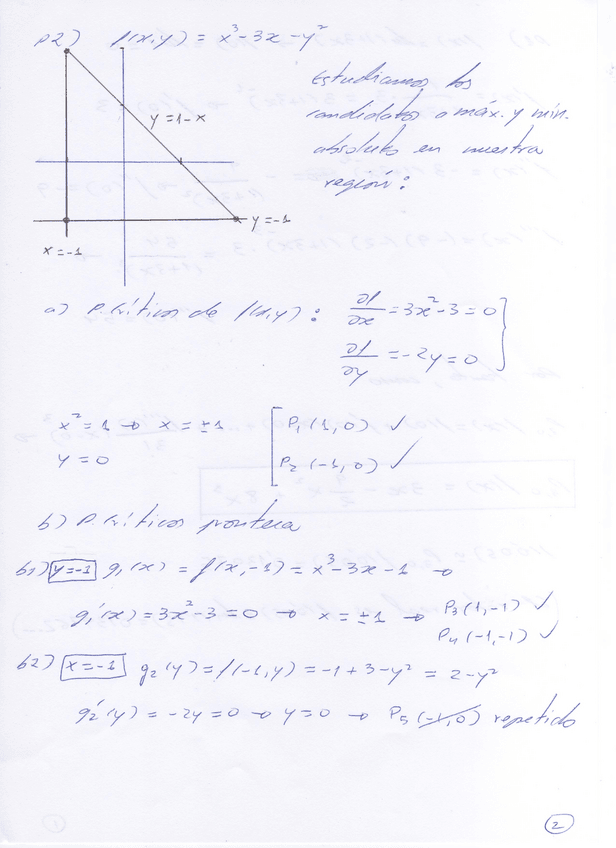 P2) f(x,y) = x³-3x-y²
Estudiamos los
candidatos a máx. y mín.
absoluto en nuestra
región:
y=1-x
y=-1
x=-1
a) P. Críticos de f(x,y): ∂f/∂x = 3x²-3=0
∂f/∂y = -2y=0
x²=1 → x=±1 P₁(1,0) ✓
y=0 P₂(-1,0) ✓
b) P. Críticos frontera
b1) y=-1 g₁(x) = f(x,-1) = x³-3x-1 →
g₁'(x) = 3x²-3=0 → x=±1 → P₃(1,-1) ✓
P₄(-1,-1) ✓
b2) x=-1 g₂(y) = f(-1,y) = -1+3-y² = 2-y²
g₂'(y) = -2y=0 → y=0 → P₅(-1,0) repetido
2